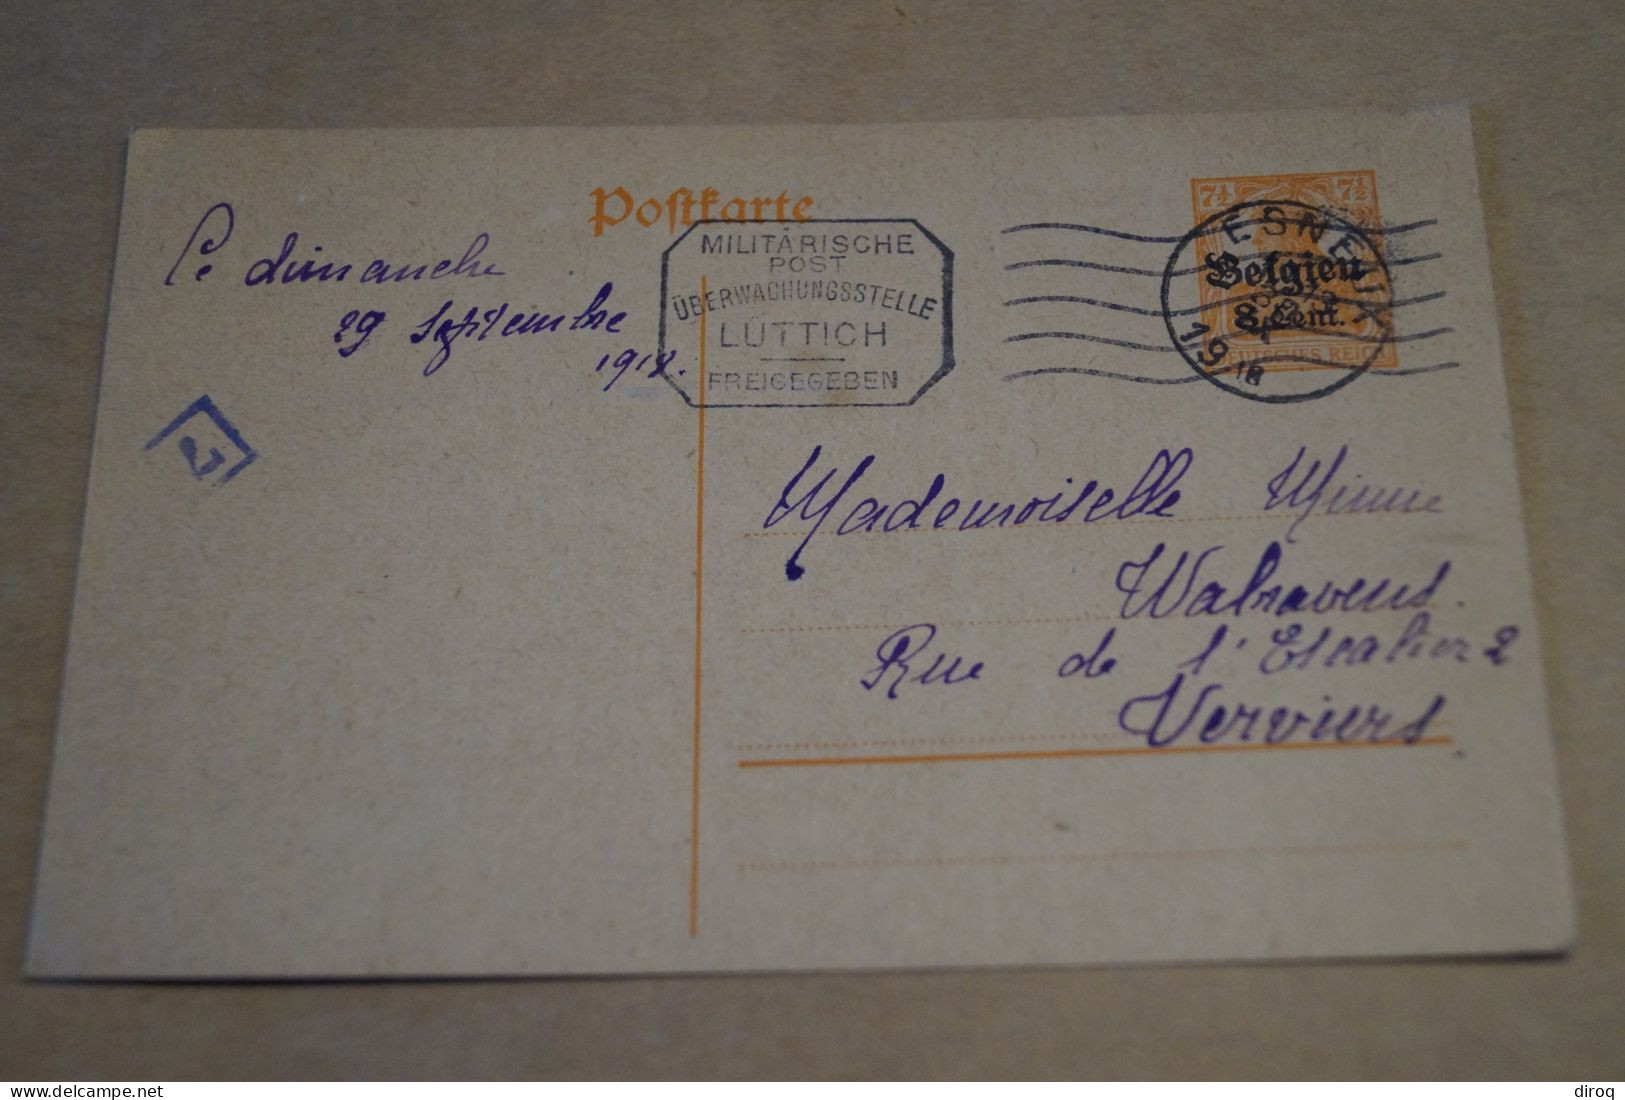 Postkarte
7½ 7½
Ce dimanche
29 Septembre
1918.
MILITÄRISCHE
POST
ÜBERWACHUNGSSTELLE
LÜTTICH
FREIGEGEBEN
ESNEUX
Belgien
8 Cent.
DEUTSCHES REICH
19 18
2
Mademoiselle Minnie
Walravens.
Rue de l'Escalier 2
Verviers.
delcampe.net
diroq